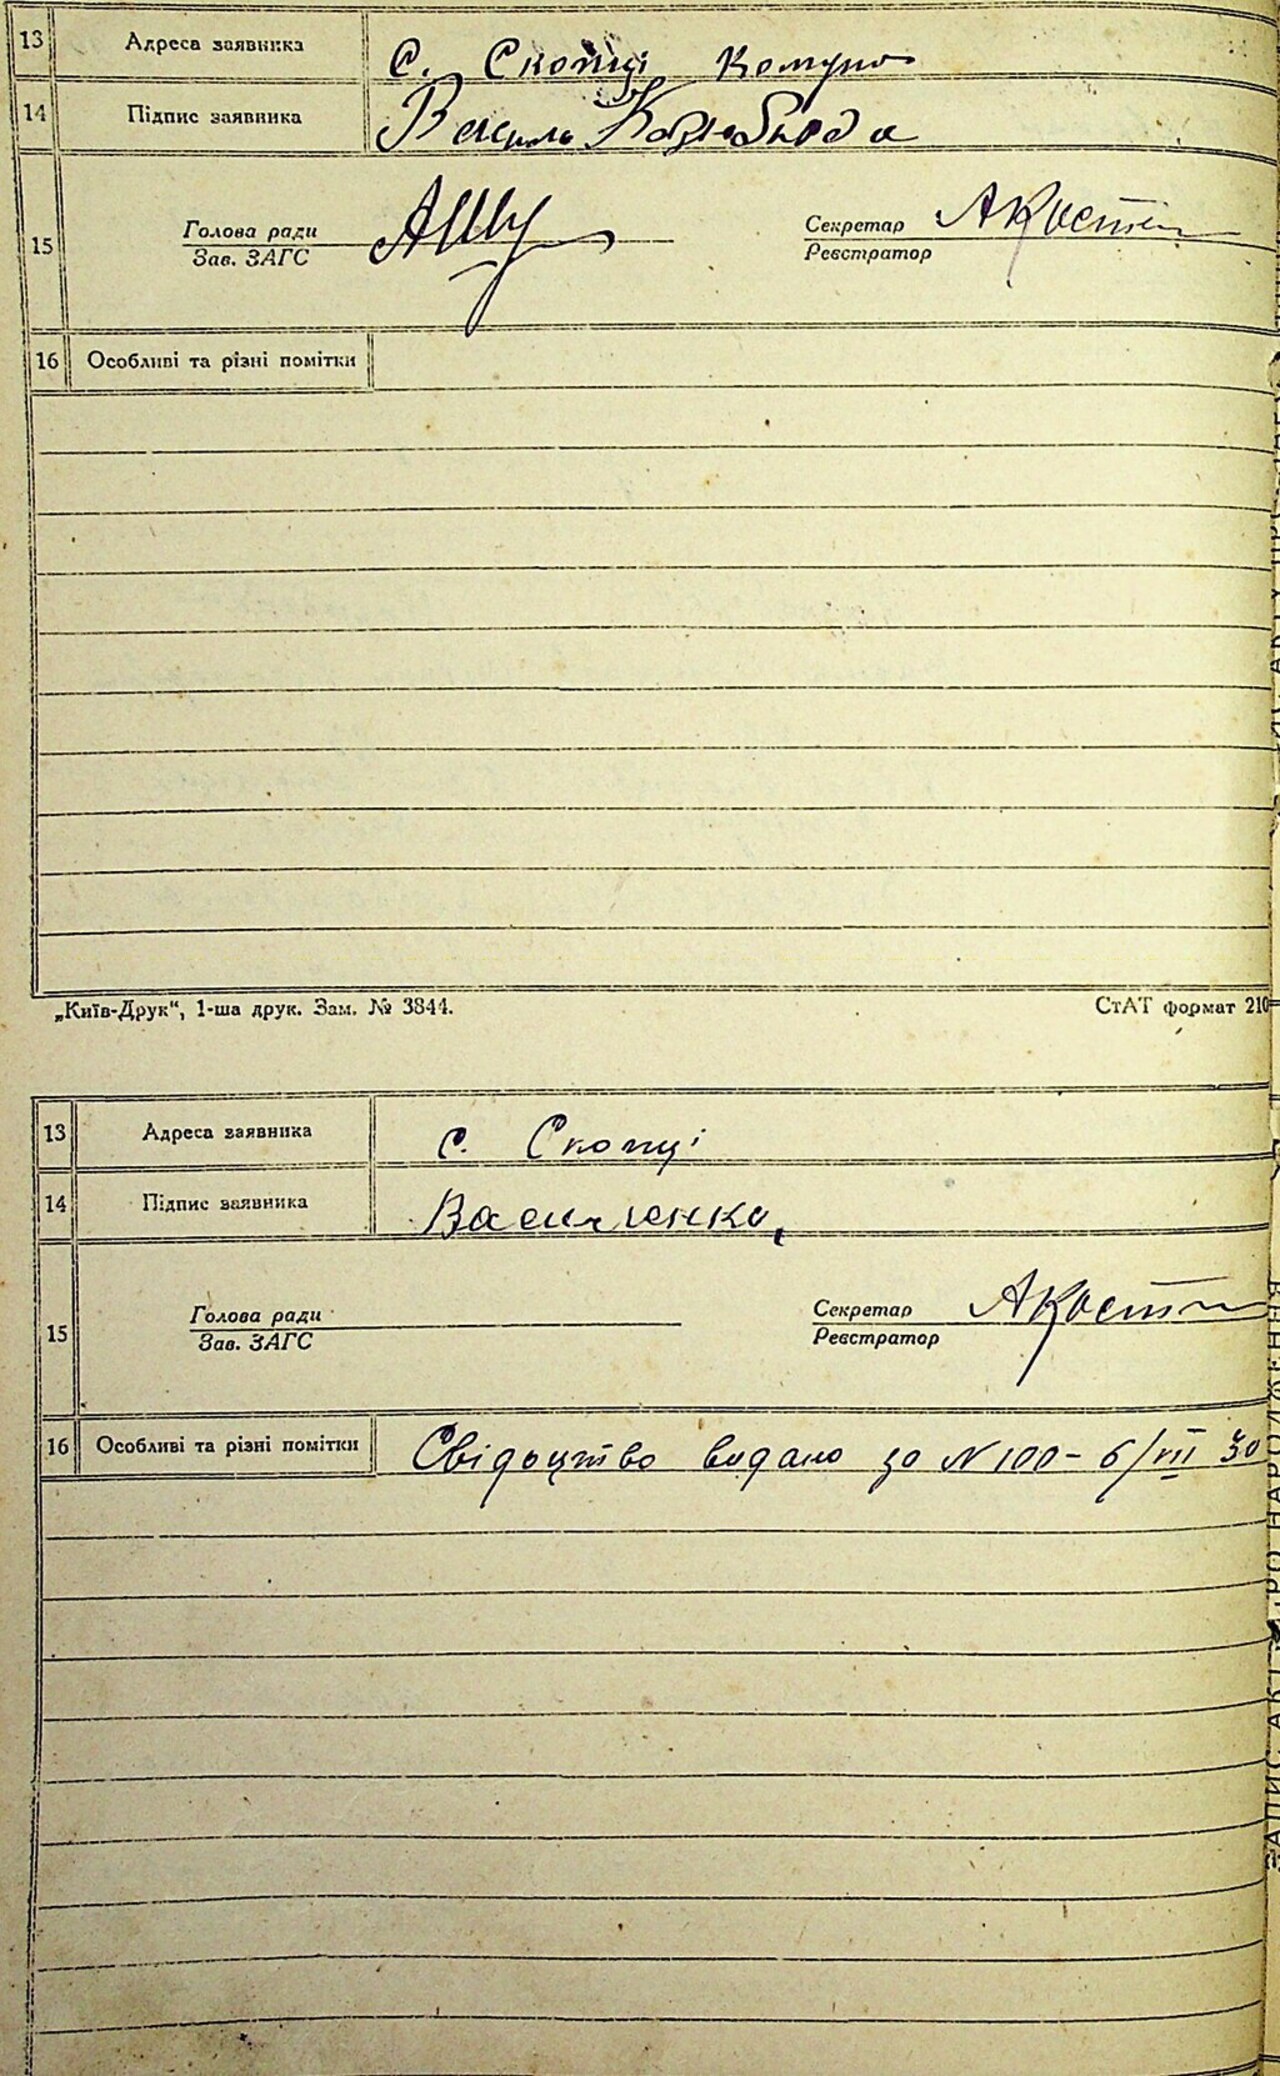 13 Адреса заявника С. Скопці Комуна
14 Підпис заявника Василь
15 Голова ради Секретар АКостін
Зав. ЗАГС Реєстратор
16 Особливі та різні помітки
„Київ-Друк“, 1-ша друк. Зам. № 3844. СтАТ формат 210
13 Адреса заявника с. Скопці
14 Підпис заявника Василенко
15 Голова ради Секретар АКостін
Зав. ЗАГС Реєстратор
16 Особливі та різні помітки Свідоцтво видано за N 100 - 6/VII 30